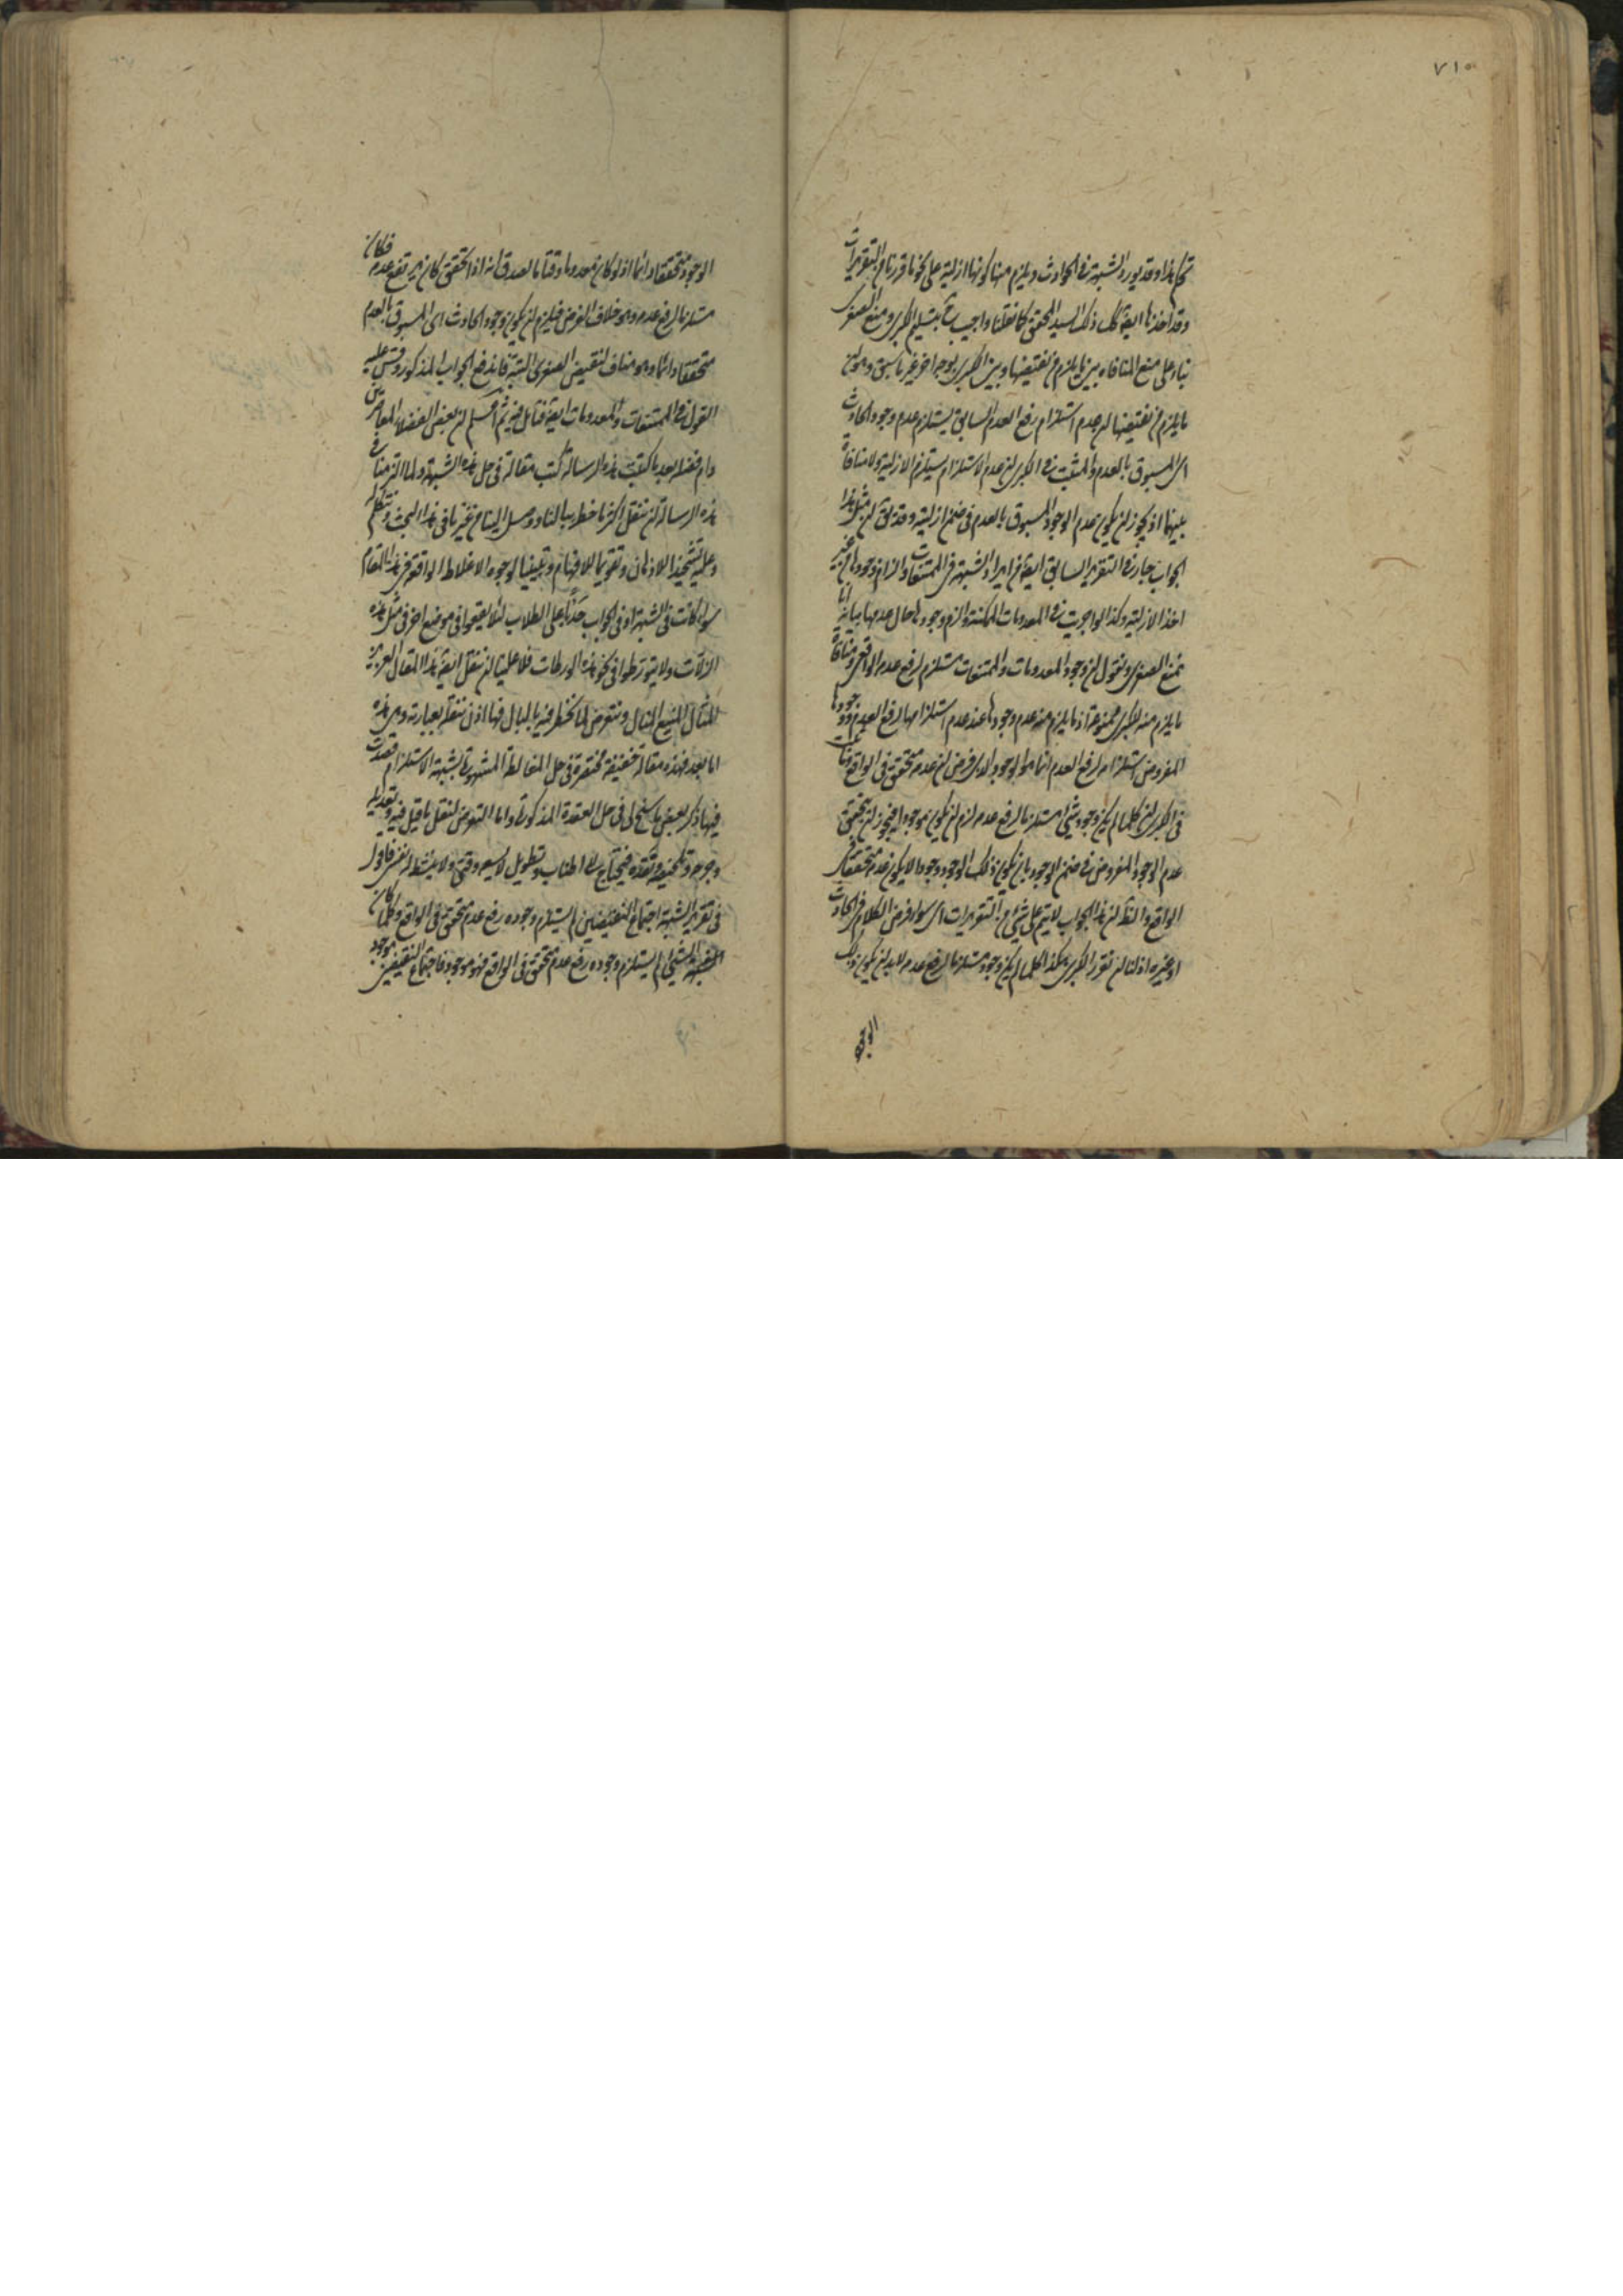 ٧١٥
تم هذا وقد يورد الشبهة في الحوادث ويلزم منها كونها ازلية على نحو ما قررنا من التقريرات
وقد اخذنا ايضا ذلك السيد المحقق كما نقلنا واجيب بتسليم الكبرى ومنع الصغرى
بناء على منع المنافاه بين ما يلزم من نقيضها وبين الكبرى بوجه اخر غير ما سبق وهو ان
ما يلزم من نقيضها ان عدم استلزام رفع العدم السابق يستلزم عدم وجود الحادث
اى المسبوق بالعدم والمثبت في الكبرى ان عدم الاستلزام يستلزم الازلية ولا منافاة
بينهما اذ يجوز ان يكون عدم الوجود المسبوق بالعدم في ضمن ازليته وقد يق ان مثل هذا
الجواب جار في التقرير السابق ايضا من ايراد الشبهة في الممتنعات والزام وجودها من غير
اخذ الازلية وكذا الواجبية في المعدومات الممكنة والزام وجودها حال عدمها بيانه انا
نمنع الصغرى ونقول ان وجود المعدومات والممتنعات مستلزم لرفع عدمه الواقعى ومنافاة
ما يلزم منه للكبرى ممنوعة اذ ما يلزم منه عدم وجودها عند عدم استلزامها لرفع العدم ووجودها
المفروض استلزامه لرفع العدم انما هو الوجود الذى فرض ان عدمه متحقق في الواقع
في الكبرى ان كلما لم يكن وجود شيء مستلزما لرفع عدمه لزم ان يكون موجودا فيجوز ان يتحقق
عدم الوجود المفروض في ضمن الوجود بان يكون ذلك الوجود وجودا لا يكون عدمه متحققا في
الواقع والظ ان هذا الجواب لا يتم على شيء من التقريرات اى سواء فرض الكلام في الحادث
او غيره اذ لنا ان نقرر الكبرى هكذا كلما لم يكن وجوده مستلزما لرفع عدمه لا بد ان يكون ذلك
الوجود
الوجود متحققا دائما اذ لو كان معدوما وقتا ما لصدق انه اذا تحقق كان يرتفع عدمه فكان
مستلزما لرفع عدمه وهو خلاف الفرض فيلزم ان يكون وجود الحادث اى المسبوق بالعدم
متحققا دائما وهو مناف لنقيض الصغرى البتة فاندفع الجواب المذكور وقس عليه
القول في الممتنعات والمعدومات ايضا فتامل فيه ثم اعلم ان بعض الفضلاء المعاصرين
دام فضله بعد ما كتبت هذه الرسالة كتب مقالة في حل هذه الشبهة ولما التزمنا في
هذه الرسالة ان ننقل اكثر ما خطر ببالنا ووصل الينا من غيرنا في هذا البحث ونتكلم
وعليه تشحيذا للاذهان وتقويما للافهام وتبيينا لوجوه الاغلاط الواقعة في هذا المقام
سواء كانت في الشبهة او في الجواب حذرا على الطلاب لئلا يقعوا في موضع اخر في مثل هذه
الزلات ولا يتورطوا في نحو هذه الورطات فلا علينا ان ننقل ايضا هذا المقال العزيز
المثال المنيع المنال ونتعرض لما يخطر فيه بالبال فها اذن ننقله بعبارته وهى هذه
اما بعد فهذه مقالة خفيفة مختصرة في حل المغالطة المشهورة بشبهة الاستلزام قصدت
فيها ذكر بعض ما سنح لى في حل العقدة المذكورة واما التعرض لنقل ما قيل فيه وتعديله
وجرحه وتحسينه وتنقده فيحتاج الى اطناب وتطويل لا يسعه وقتى ولا ينشط له نفسى فاقول
في تقرير الشبهة اجتماع النقيضين لم يستلزم وجوده رفع عدم متحقق في الواقع وكلما كان
الشيء لم يستلزم وجوده رفع عدم متحقق في الواقع فهو موجود فاجتماع النقيضين موجود